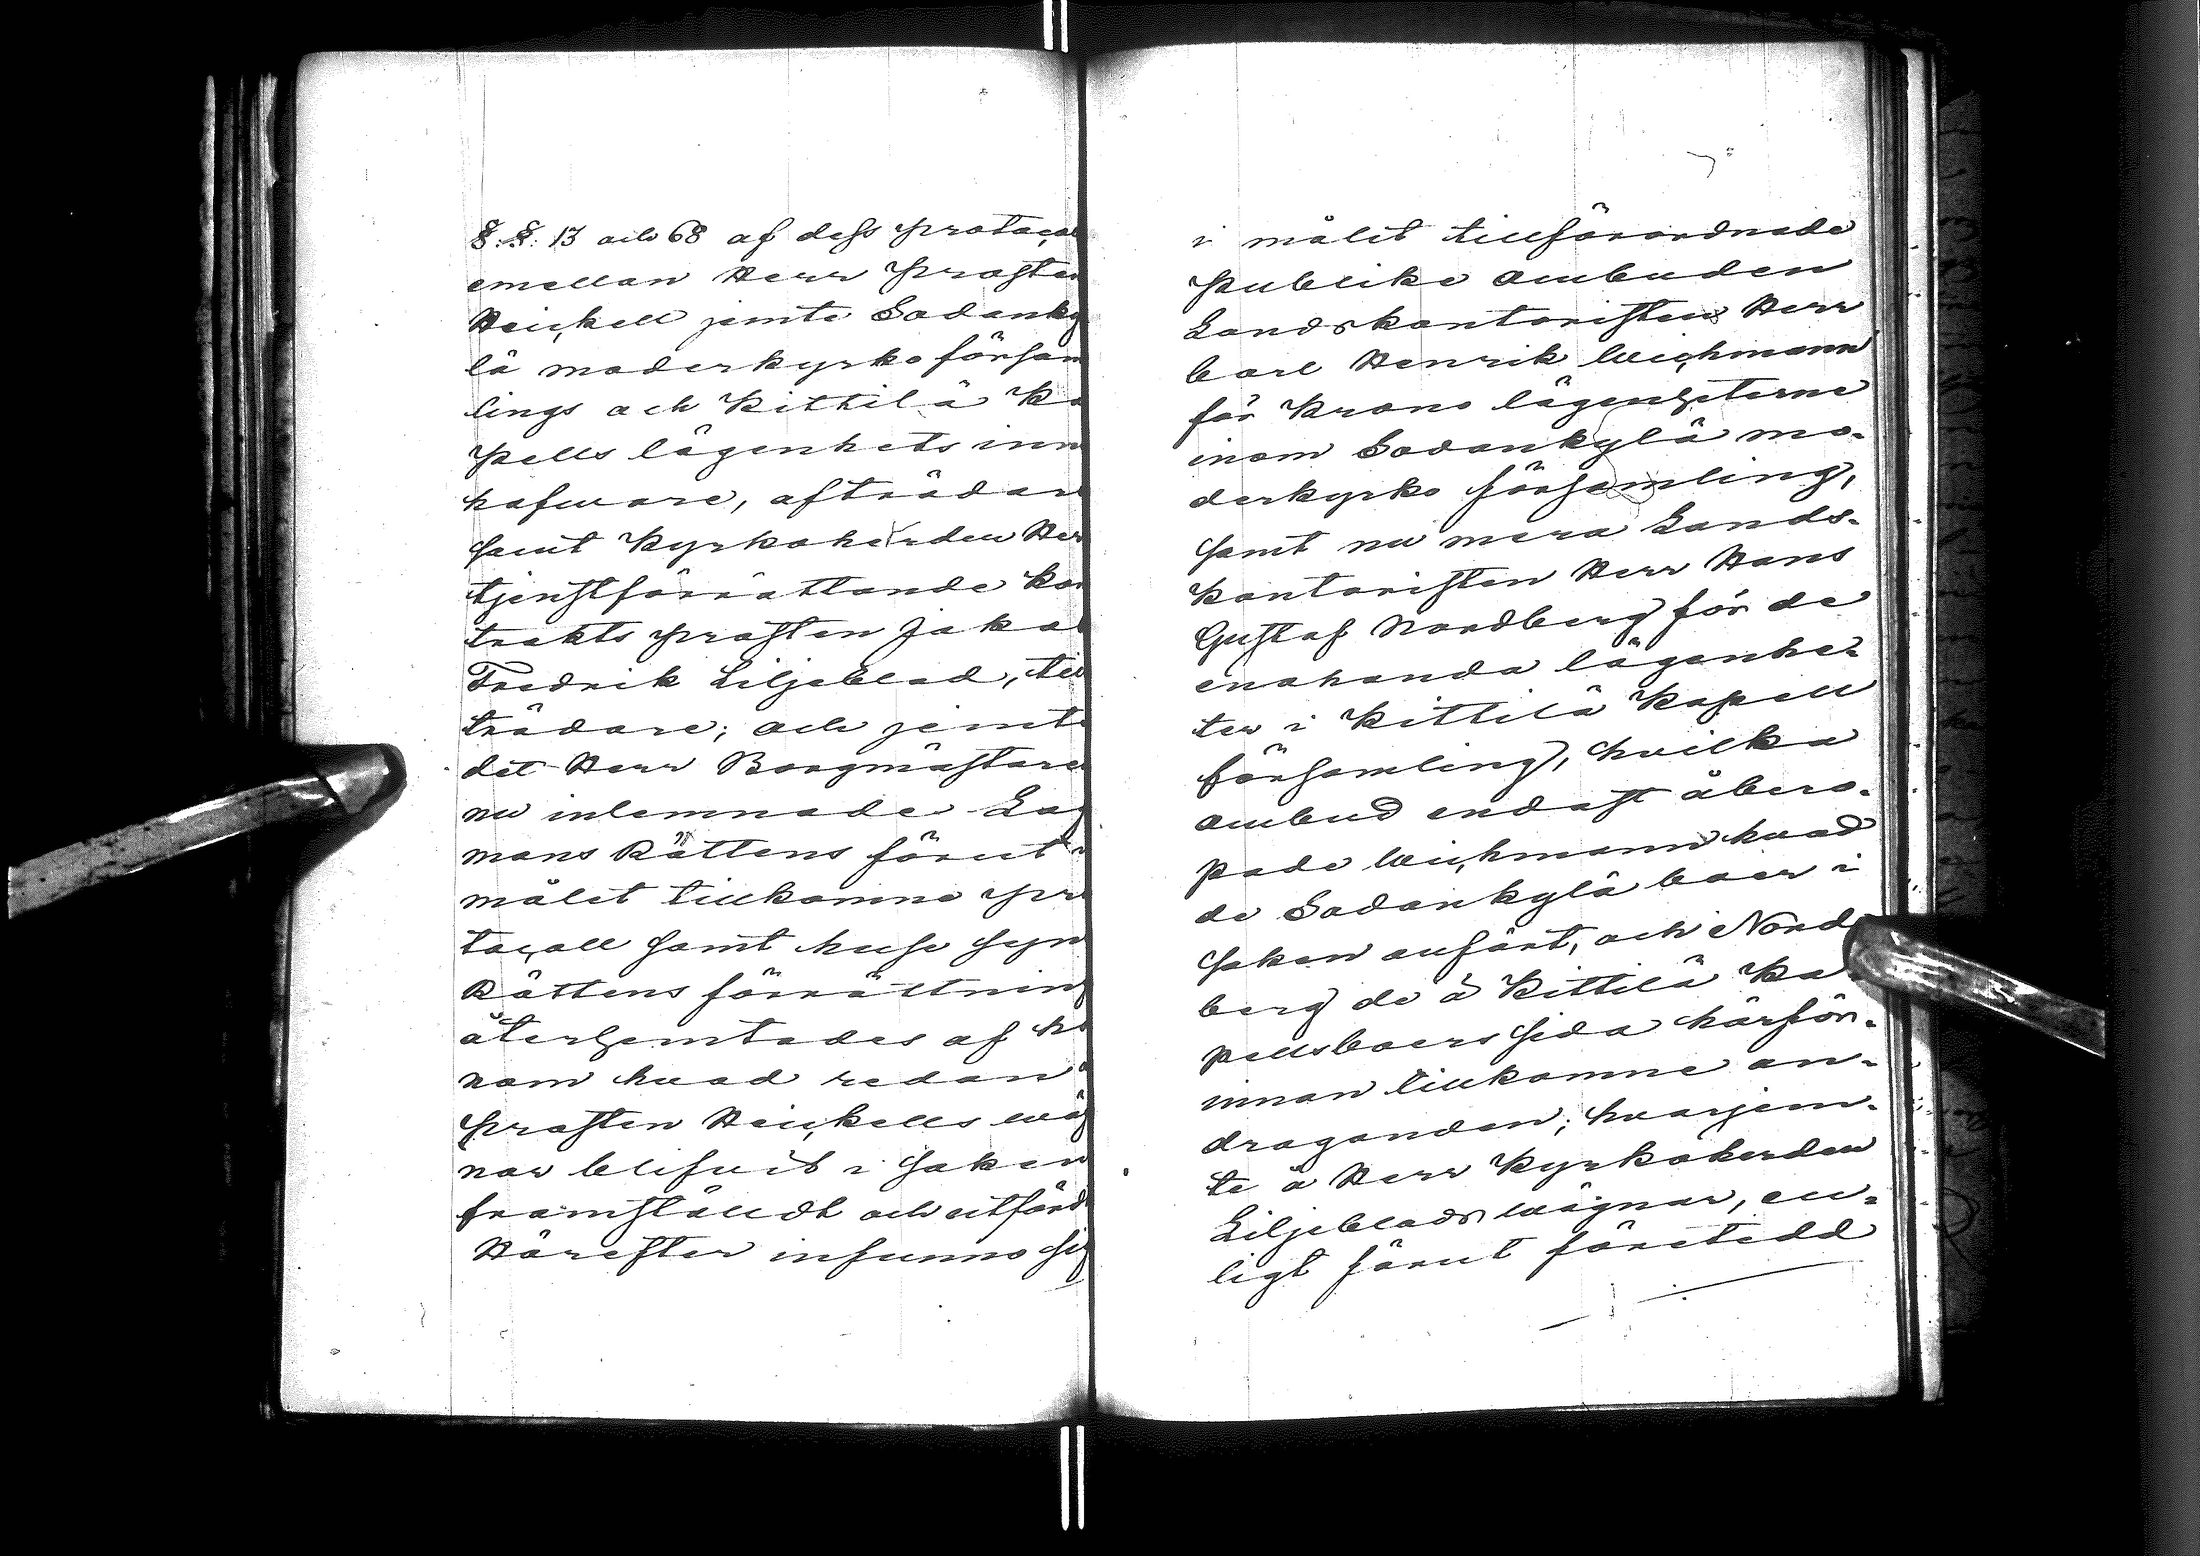 §. §. 13 och 68 af dess protocol
emellan Herr Prosten
Heickell jemte Sodanky
lä moderkyrko försam
lings och Kittilä Ka
pells lägenhets inne
hafware, afträdare
samt Kyrkoherden Her
tjenstförrättande Kon
trakts prosten Jakob
Fredrik Liljeblad, till
trädare; och jemte
det Herr Borgmästaren
nu inlemnade Lag
mans Rättens förut i
målet tillkomne pro
tocoll samt husesyn
Rättens förrättning
återhemtades af ho
nom hwad redan å
Prosten Heickells wäg
nar blifwit i saken
framställdt och utfördt
Härefter infunno sig
i målet tillförordnade
Publike Ombuden
Landskontoristen Herr
Carl Henrik Weichmann
för Krono lägenheterne
inom Sodankylä mo-
derkyrko församling,
samt nu mera Lands-
kontoristen Herr Hans
Gustaf Nordberg för de
enahanda lägenhe-
ter i Kittilä Kapell
församling, hvilka
ombud endast åbero-
pade Weichmann hwad
de Sodankylä boer i
saken anfört, och Nord
berg de å Kittilä Ka
pellsboers sida härför-
innan tillkomne an-
draganden; hvarjem-
te å Herr Kyrkoherden
Liljeblads wägnar, en-
ligt förut företedd